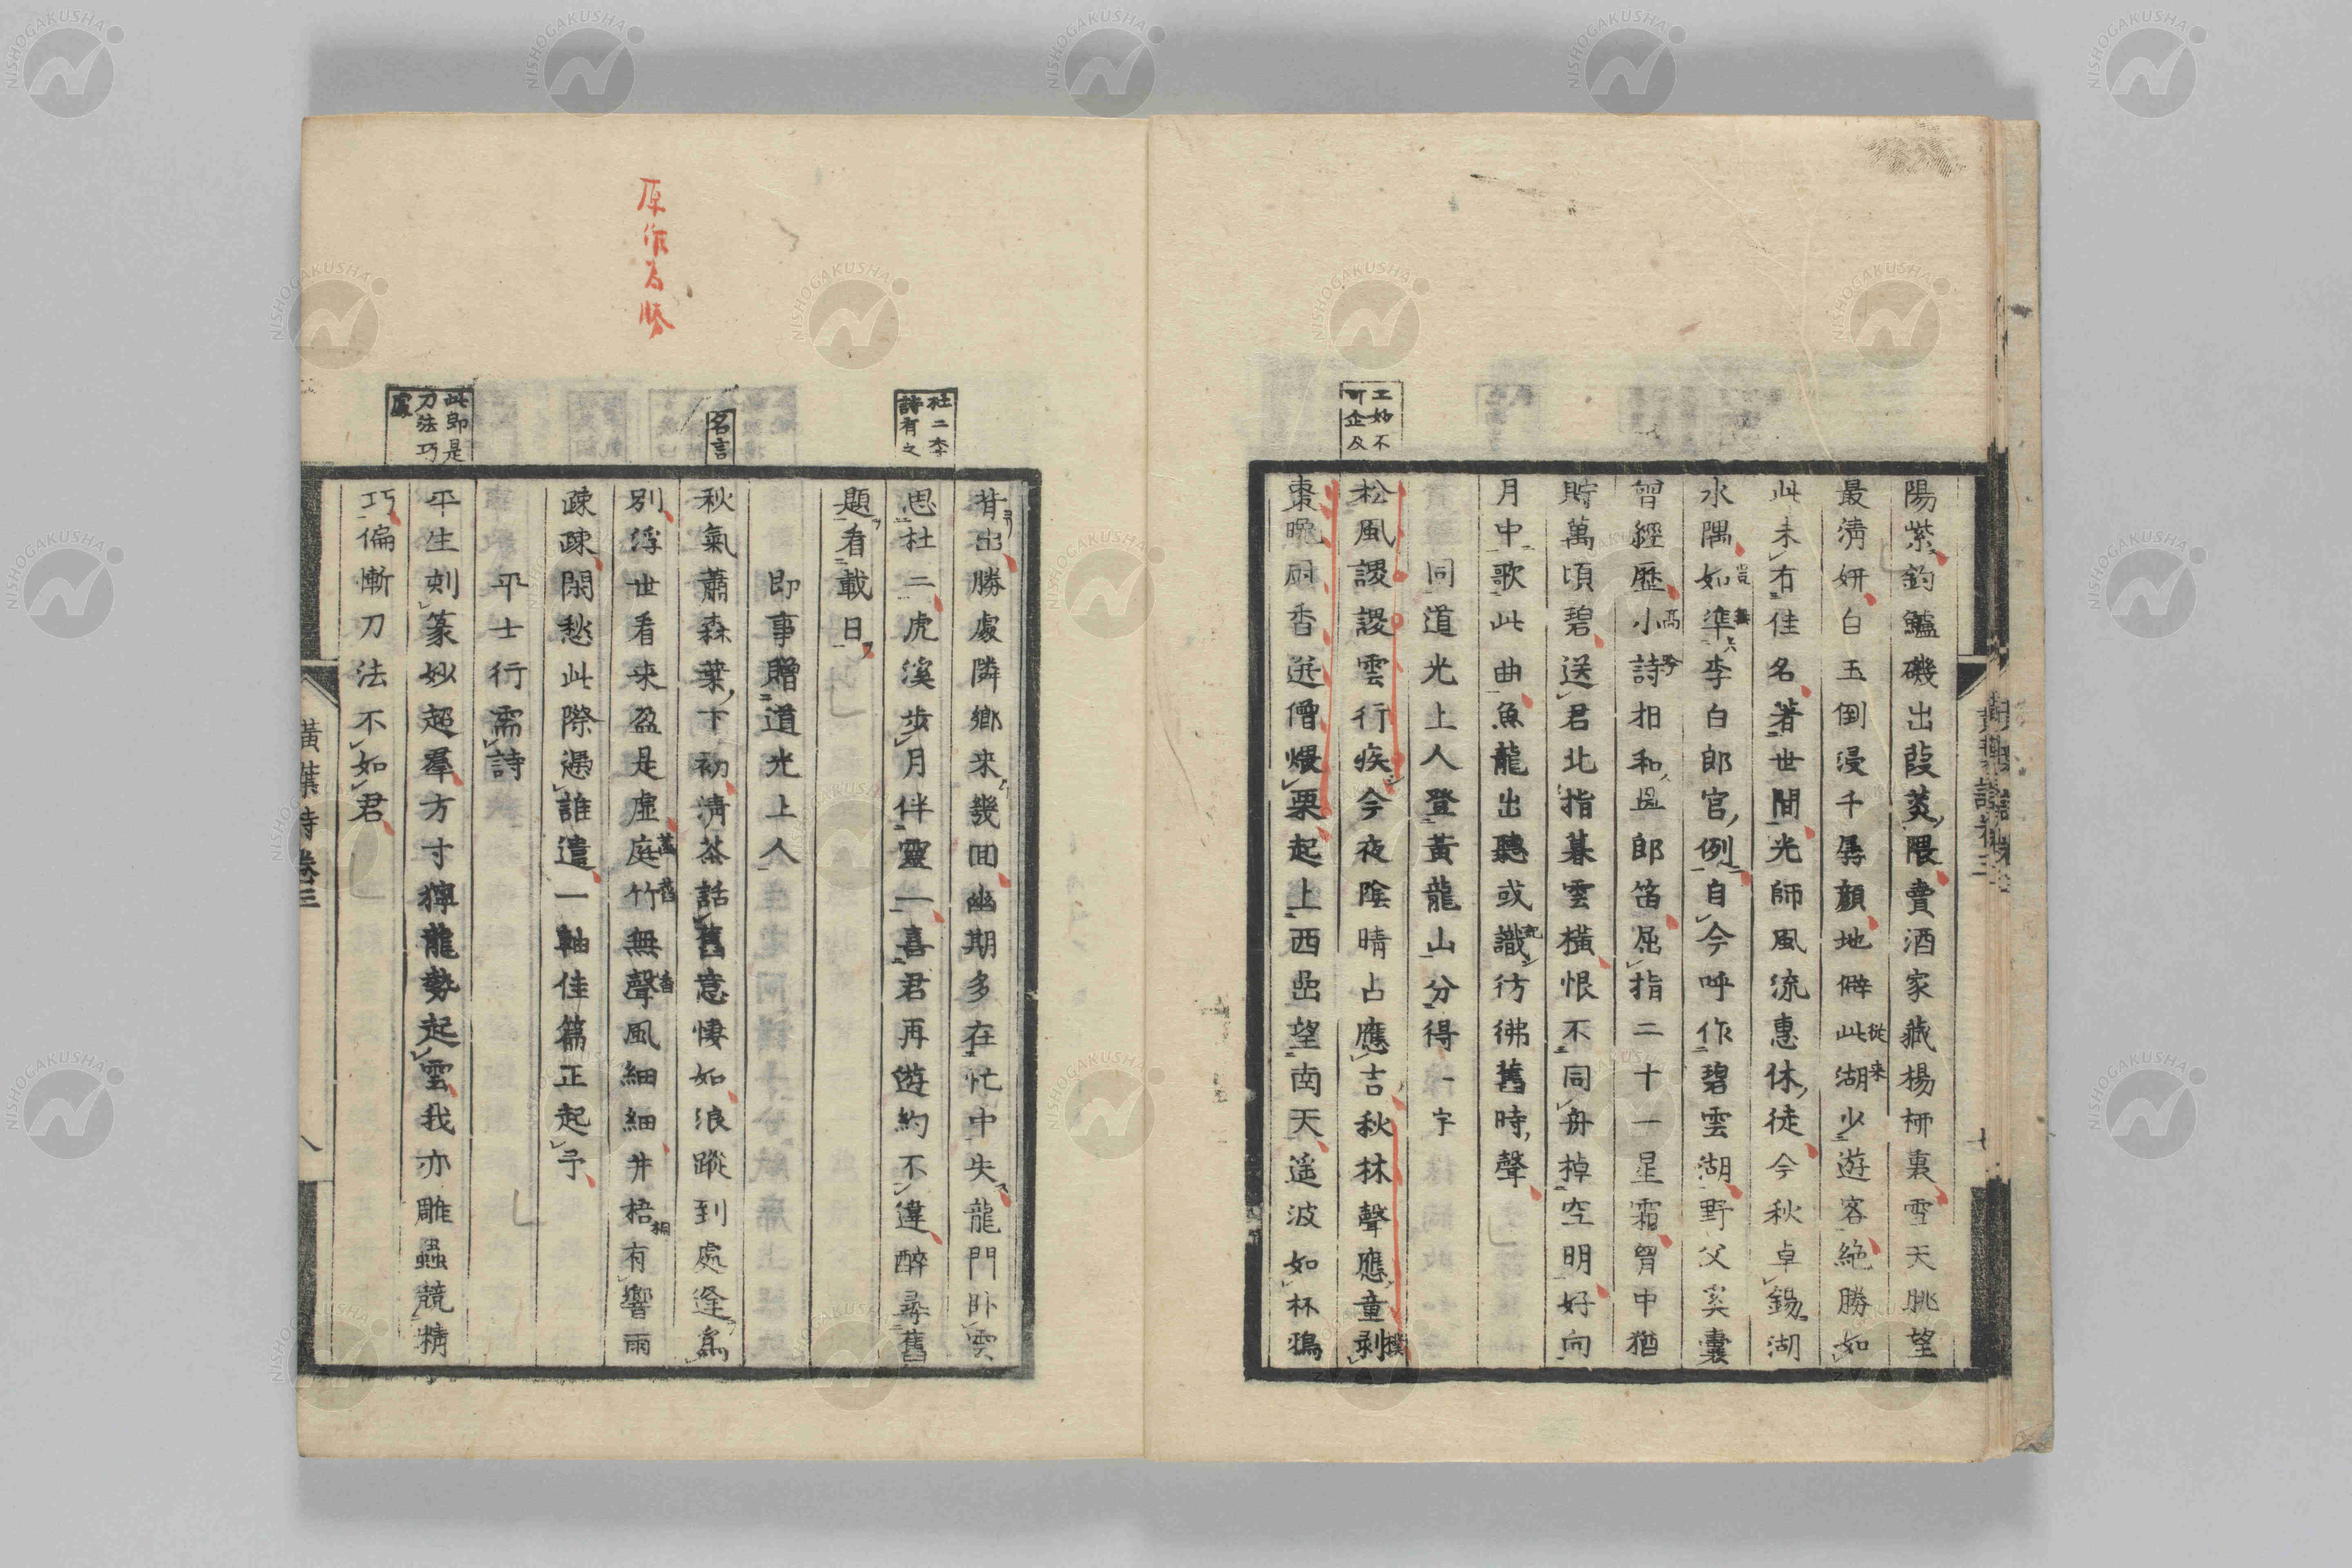 工妙不
可企及
陽紫釣鱸磯出葭菼隈賣酒家藏楊柳裏雪天眺望
最淸姸白玉倒浸千孱顏地僻此湖少遊客絶勝如
從来
此未有佳名著世間光師風流惠休徒今秋卓錫湖
水隅如準李白郎官例自今呼作碧雲湖野父奚囊
曾經歷小詩相和邑郎笛屈指二十一星霜胷中猶
貯萬頃碧送君北指暮雲橫恨不同舟掉空明好向
月中歌此曲魚龍出聽或識彷彿舊時聲
同道光上人登黃龍山分得一字
松風謖謖雲行疾今夜陰晴占應吉秋林聲應童剥
撲
棗晩厨香逆僧煨栗起上西嵒望南天遥波如杯鴉
杜二李
詩有之
名言
此卽是
刀法巧
處
原作為勝
昔出勝處隣鄉來幾囬幽期多在忙中失龍門卧雲
思杜二虎溪步月伴靈一喜君再遊約不違醉尋舊
題看載日
即事贈道光上人
秋氣蕭森葉下初淸茶話舊意悽如浪蹤到處逢爲
別浮世看來盈是虛庭竹無聲風細細井梧有響雨
疎疎閑愁此際遇誰遣一軸佳篇正起予
平士行濡詩
平生刻篆妙超羣方寸獰龍勢起雲我亦雕蟲競精
巧偏慚刀法不如君
黃葉詩卷三
八